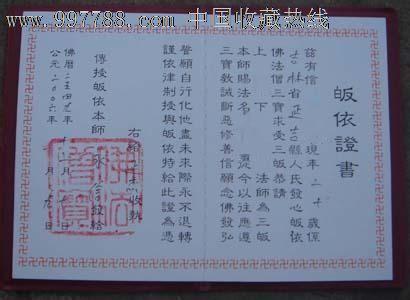 www.997788.com 中国收藏热线
皈依證書
茲有信 現年二十歲係
吉林省吉縣人民發心皈依
佛法僧三寶求受三皈恭請
上 下 法師為三皈
本師賜法名 今以往應遵
三寶教誡斷惡修善信願念佛發弘
誓願自行化他盡未來際永不退轉
謹依律制授與皈依特給此證為憑
右給 收執
傳授皈依本師 發給
佛曆二五四年十二月日
公元二00六年月日